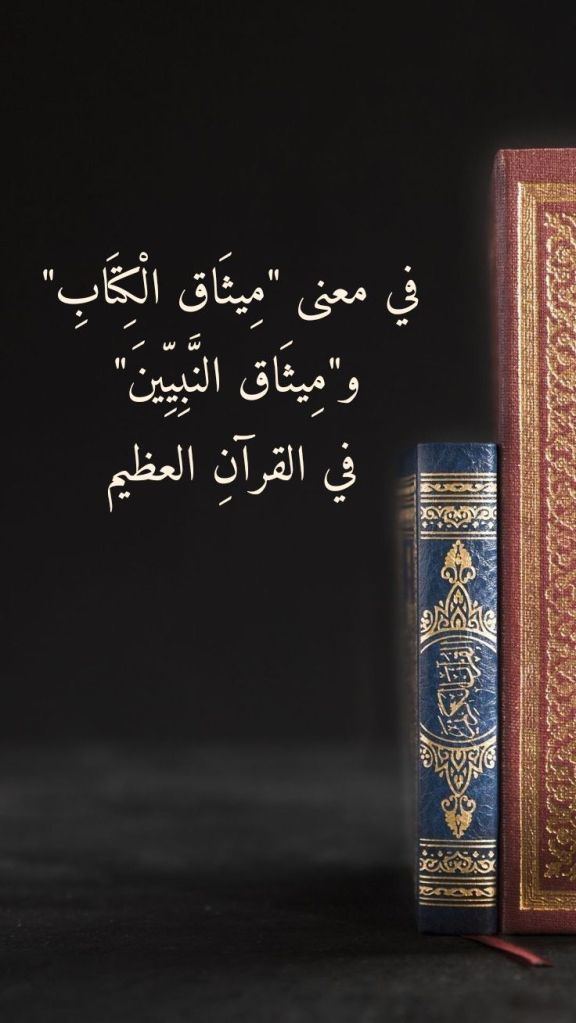 في معنى "مِيثَاق الْكِتَابِ"
و"مِيثَاق النَّبِيِّينَ"
في القرآنِ العظيم
القرآن الكريم